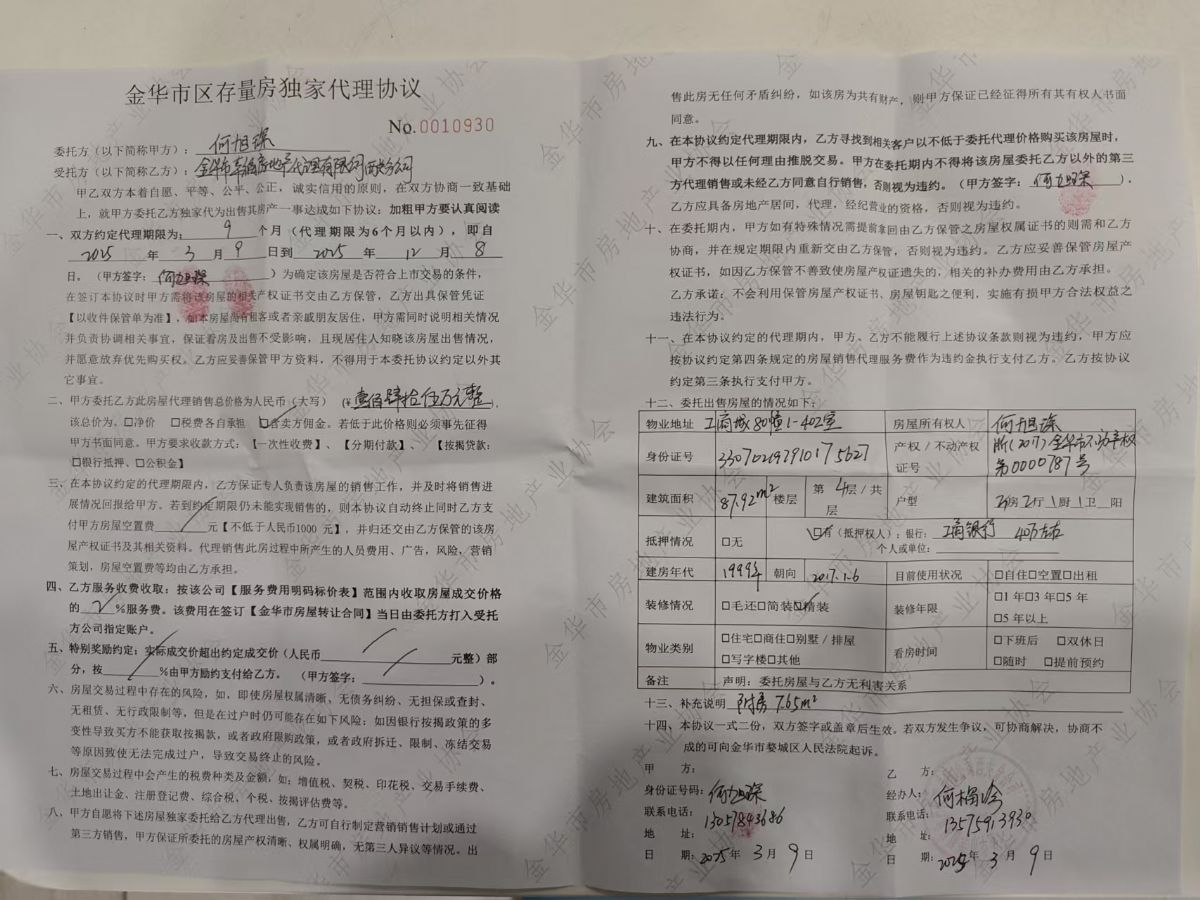 金华市区存量房独家代理协议
No.0010930
委托方（以下简称甲方）：何旭琛
受托方（以下简称乙方）：金华市 房地产代理有限公司 分公司
甲乙双方本着自愿、平等、公平、公正，诚实信用的原则，在双方协商一致基础
上，就甲方委托乙方独家代为出售其房产一事达成如下协议：加粗甲方要认真阅读
一、双方约定代理期限为：9个月（代理期限为6个月以内），即自
2025年3月9日到2025年12月8
日。（甲方签字：何旭琛）为确定该房屋是否符合上市交易的条件，
在签订本协议时甲方需将该房屋的相关产权证书交由乙方保管，乙方出具保管凭证
【以收件保管单为准】，如本房屋尚有租客或者亲戚朋友居住，甲方需同时说明相关情况
并负责协调相关事宜，保证看房及出售不受影响，且现居住人知晓该房屋出售情况，
并愿意放弃优先购买权。乙方应妥善保管甲方资料，不得用于本委托协议约定以外其
它事宜。
二、甲方委托乙方此房屋代理销售总价格为人民币（大写）（¥壹佰肆拾伍万元整），
该总价为。□净价 □税费各自承担 ☑含卖方佣金。若低于此价格则必须事先征得
甲方书面同意。甲方要求收款方式：【一次性收费】、【分期付款】、【按揭贷款：
□银行抵押、□公积金】
三、在本协议约定的代理期限内，乙方保证专人负责该房屋的销售工作，并及时将销售进
展情况回报给甲方。若到约定期限仍未能实现销售的，则本协议自动终止同时乙方支
付甲方房屋空置费 / 元【不低于人民币1000 元】，并归还交由乙方保管的该房
屋产权证书及其相关资料。代理销售此房过程中所产生的人员费用、广告，风险，营销
策划，房屋空置费等均由乙方承担。
四、乙方服务收费收取：按该公司【服务费用明码标价表】范围内收取房屋成交价格
的2%服务费。该费用在签订【金华市房屋转让合同】当日由委托方打入受托
方公司指定账户。
五、特别奖励约定：实际成交价超出约定成交价（人民币 / 元整）部
分，按 / %由甲方励约支付给乙方。（甲方签字： / ）。
六、房屋交易过程中存在的风险，如，即使房屋权属清晰、无债务纠纷、无担保或查封、
无租赁、无行政限制等，但是在过户时仍可能存在如下风险：如因银行按揭政策的多
变性导致买方不能获取按揭款，或者政府限购政策，或者政府拆迁、限制、冻结交易
等原因致使无法完成过户，导致交易终止的风险。
七、房屋交易过程中会产生的税费种类及金额，如：增值税、契税、印花税、交易手续费、
土地出让金、注册登记费、综合税、个税、按揭评估费等。
八、甲方自愿将下述房屋独家委托给乙方代理出售，乙方可自行制定营销销售计划或通过
第三方销售，甲方保证所委托的房屋产权清晰、权属明确，无第三人异议等情况。出
售此房无任何矛盾纠纷，如该房为共有财产，则甲方保证已经征得所有其有权人书面
同意。
九、在本协议约定代理期限内，乙方寻找到相关客户以不低于委托代理价格购买该房屋时，
甲方不得以任何理由推脱交易。甲方在委托期内不得将该房屋委托乙方以外的第三
方代理销售或未经乙方同意自行销售，否则视为违约。（甲方签字：何旭琛）。
乙方应具备房地产居间，代理，经纪营业的资格，否则视为违约。
十、在委托期内，甲方如有特殊情况需提前拿回由乙方保管之房屋权属证书的则需和乙方
协商，并在规定期限内重新交由乙方保管，否则视为违约。乙方应妥善保管房屋产
权证书，如因乙方保管不善致使房屋产权证遗失的，相关的补办费用由乙方承担。
乙方承诺：不会利用保管房屋产权证书、房屋钥匙之便利，实施有损甲方合法权益之
违法行为。
十一、在本协议约定的代理期内，甲方、乙方不能履行上述协议条款则视为违约，甲方应
按协议约定第四条规定的房屋销售代理服务费作为违约金执行支付乙方。乙方按协议
约定第三条执行支付甲方。
十二、委托出售房屋的情况如下：
物业地址 工商城80幢1-402室 房屋所有权人 何旭琛
身份证号 330702197910175627 产权/不动产权证号 浙(2017)金华市不动产权第0000787号
建筑面积 87.92m² 楼层 第4层/共 层 户型 2房2厅1厨1卫 阳
抵押情况 □无 ☑有（抵押权人）：银行：工商银行 40万左右
个人或单位：
建房年代 1999年 朝向 2017.1.6 目前使用状况 □自住□空置□出租
装修情况 □毛还□简装☑精装 装修年限 □1年□3年□5年
□5年以上
物业类别 □住宅□商住□别墅/排屋 看房时间 □下班后 □双休日
□写字楼□其他 □随时 □提前预约
备注 声明：委托房屋与乙方无利害关系
十三、补充说明 附房7.65m²
十四、本协议一式二份，双方签字或盖章后生效。若双方发生争议，可协商解决，协商不
成的可向金华市婺城区人民法院起诉。
甲 方： 乙 方：
身份证号码：何旭琛 经办人：何梅玲
联系电话：13057843686 联系电话：13575913930
地 址： 地 址：
日 期：2025年3月9日 日 期：2025年3月9日